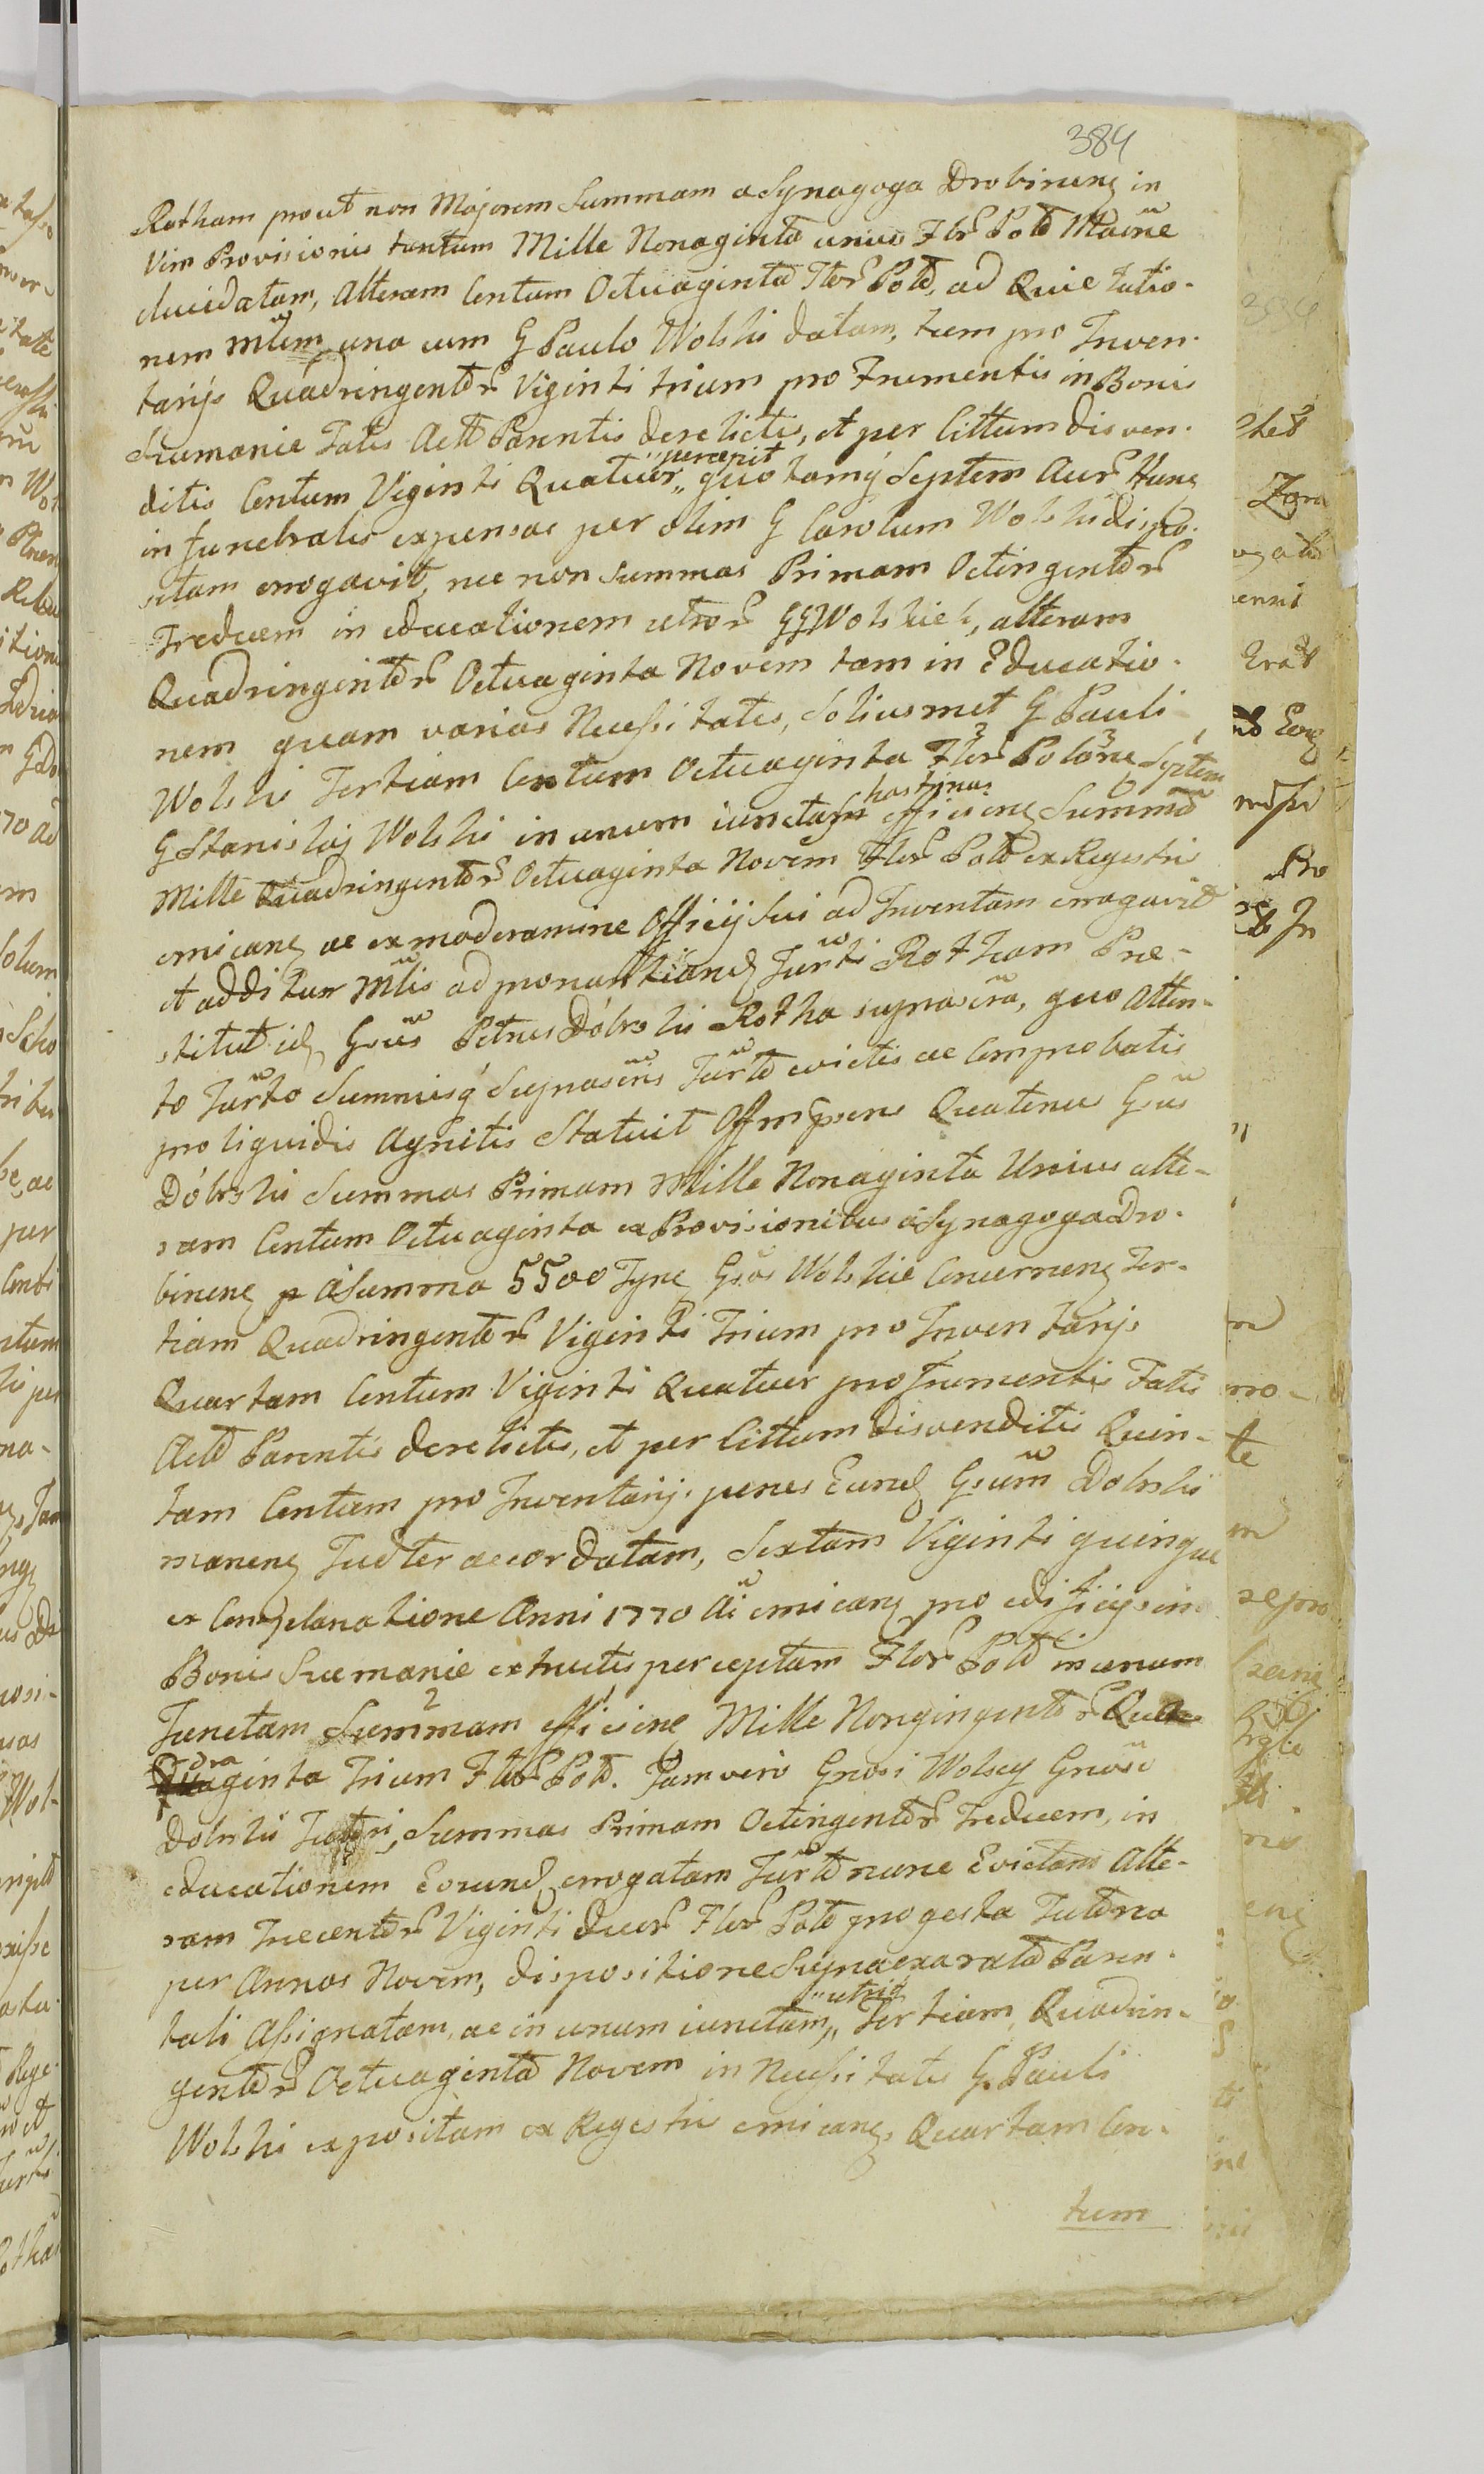 384
Rotham prout non Majorem Summam a Synagoga Drobinens in
Vim Provisionis tantum Mille Nonaginta unius Flr Pold
elucidatam, Alteram Centum Octuaginta Flor Pold, ad Quietatio-
nem una cum G Paulo Wolski datam, tum pro Inven-
tarijs Quadringentor Viginti trium pro Frumentis in Bonis
Siemanie Fatis Actt Parentis derelictis, et per Cittum disven-
ditis Centum Viginti Quatuor, percepit quo tamq Septem Aur Hung
in funebrales expensas per olim G Carolum Wolski dispo-
sitam errogavit, nec non Summas Primam Octingentor
Tredecem in educationem utror GG Wolskich, alteram
Quadringintor Octuaginta Novem tam in Educatio-
nem quam varias Necessitates, Soliusmet G Pauli
Wolski Tertiam Centum Octuaginta 3 Flor 3 Polone 1 Septem
G Stanislaj Wolski in unum iunctas hastinus efficiens Summa
Mille Quadringentor Octuaginta Novem Flor Pold ex Regestris
emicans ac ex moderamine Officij Sui ad Inventam errogavit
et additur Mlis ad pronuntiand Jurti Rotham Pre-
stitut id Gsus Petrus Dobrski Rotha suprascra, quo Atten-
to Jurto Summisq Suprascris Jurtt evictis ac Comprobatis
pro liquidis Agnitis Statuit Offm psens Quatenus Gsus
Dóbrski Summas Primam Mille Nonaginta Unius alte-
ram Centum Octuaginta ex Provisionibus a Synagoga Dro-
binens a Summa 5500 Tynf Gsos Wolskie Concernens Ter-
tiam Quadringentor Viginti Trium pro Inventarijs
Quartam Centum Viginti Quatuor pro Frumentis Fatis
Actt Parentis derelictis, et per Cittum disvenditis Quin-
tam Centum pro Inventarijs penes Eund Gsum Dobrski
manens Judter accordatam, Sextam Viginti quinque
ex Complanatione Anni 1770 Ai emicans pro edificijs in
Bonis Siemanie extructis perceptam Flor Pold in unum
Junctam 2 Summam efficiens Mille Nongingentor
Quadraginta Trium Flor Pold. Jamvero Gnosi Wolscy Gnose
Dobrski Tutori, Summas Primam Octingentor Tredecem, in
educationem Eorund, errogatam Jurtt nunc Evictam Alte-
ram Trecentor Viginti duor Flor Pold pro gesta Tutoria
per Annos Novem, dispositione Supraexarata Paren-
tali Assignatam, ac in unum iunctam, Tertiam, Quadrin-
gentor Octuaginta Novem in Necessitates G Pauli
Wolski expositam ex Regestris emicans, Quartam Cen-
tum